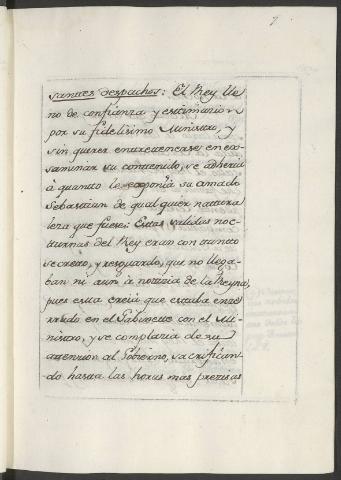 7
santes despachos: El Rey lle
no de confianza y estimacion
por su fidelisimo Ministro, y
sin querer entretenerse en ex-
saminar su contenido, se adheria
à quanto le exponia su amado
Sebastian de qualquier natura
leza que fuese: Estas salidas noc-
turnas del Rey eran con tanto
secreto, y resguardo, que no llega-
ban ni aun à notizia de la Reyna,
pues esta creia que estaba enze
rrado en el Gabinette con el Mi-
nistro, y se complazia de su
attencion al Gobierno, sacrifican-
do hasta las horas mas prezisas